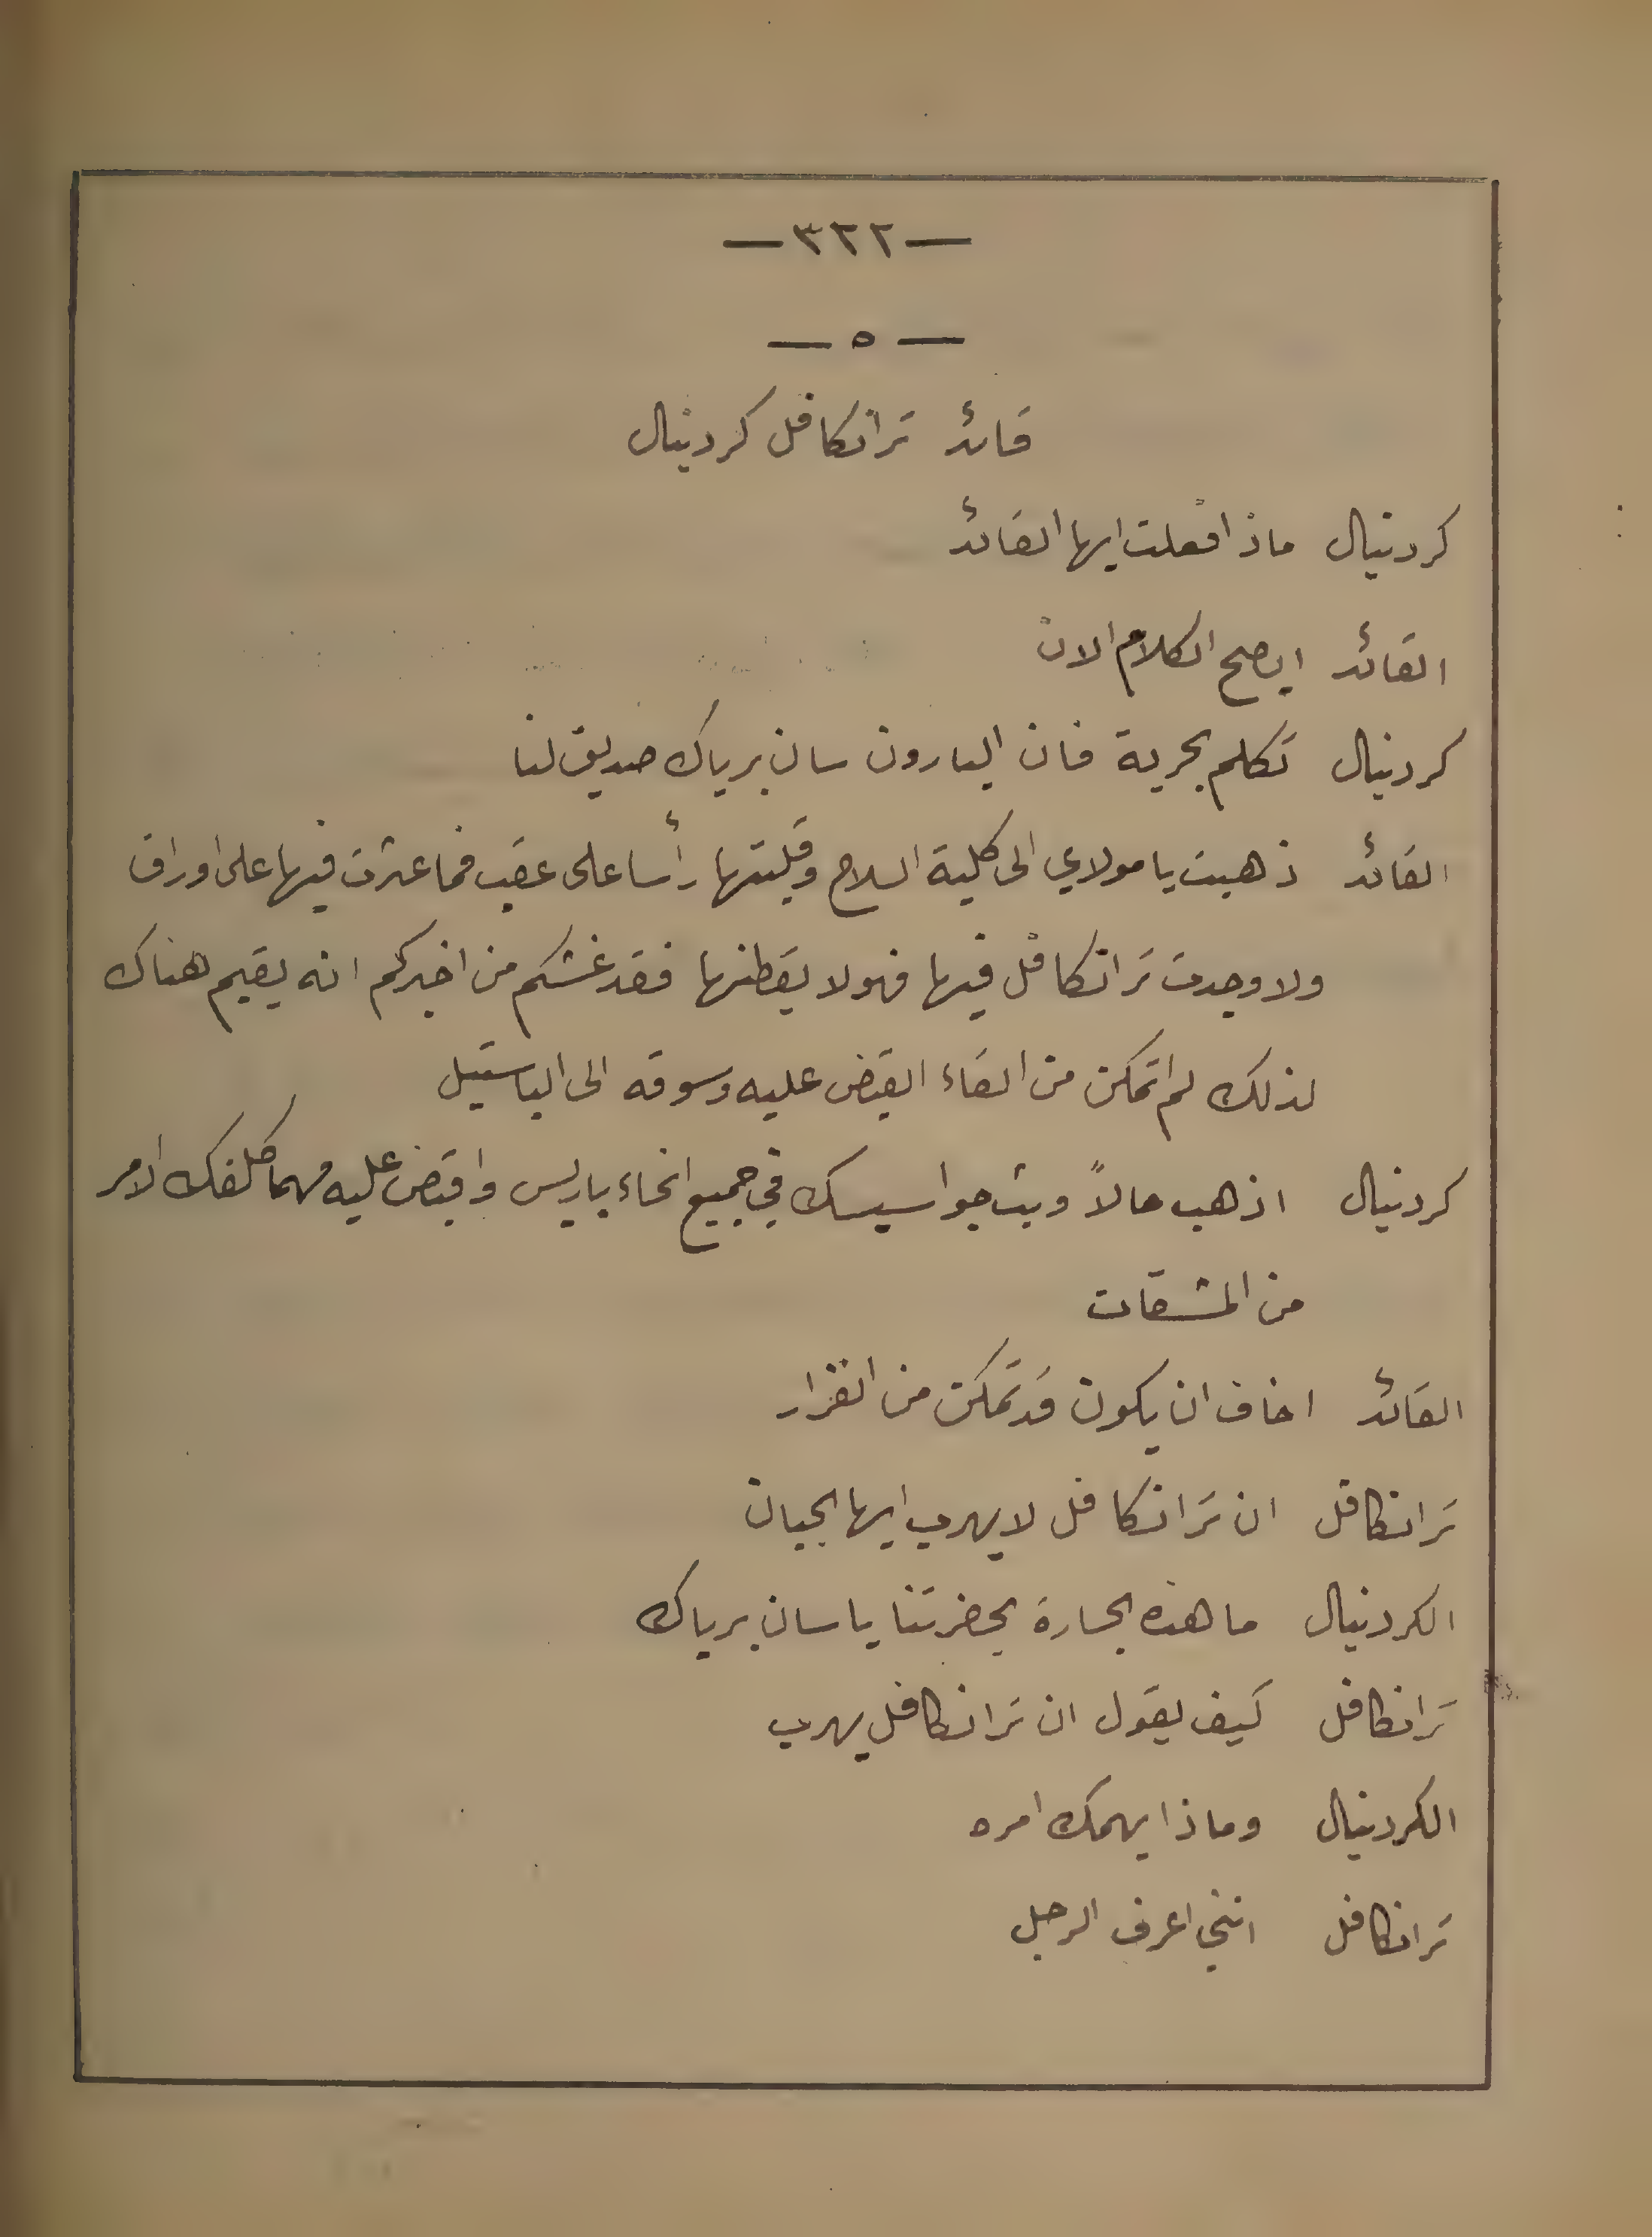 —٣٢٢—
— ٥ —
قائد ترانكافل كردينال
كردنيال ماذا فعلت ايها القائد
القائد ايصح الكلام الان
كردنيال تكلم بحرية فان البارون سان برياك صديق لنا
القائد ذهبت يا مولاي الى كلية السلاح وقلبتها رأسا على عقب فما عثرت فيها على اوراق
ولا وجدت ترانكافل فيها فهو لا يقطنها فقد غشكم من اخبركم انه يقيم هناك
لذلك لم اتمكن من القاء القبض عليه وسوقه الى الباستيل
كردنيال اذهب حالاً وبث جواسيسك في جميع انحاء باريس واقبض عليه مهما كلفك الامر
من المشقات
القائد اخاف ان يكون قد تمكن من الفرار
ترانكافل ان ترانكافل لا يهرب ايها الجبان
الكردنيال ما هذه الجسارة بحضرتنا يا سان برياك
ترانكافل كيف يقول ان ترانكافل يهرب
الكردنيال وماذا يهمك امره
ترانكافل انني اعرف الرجل